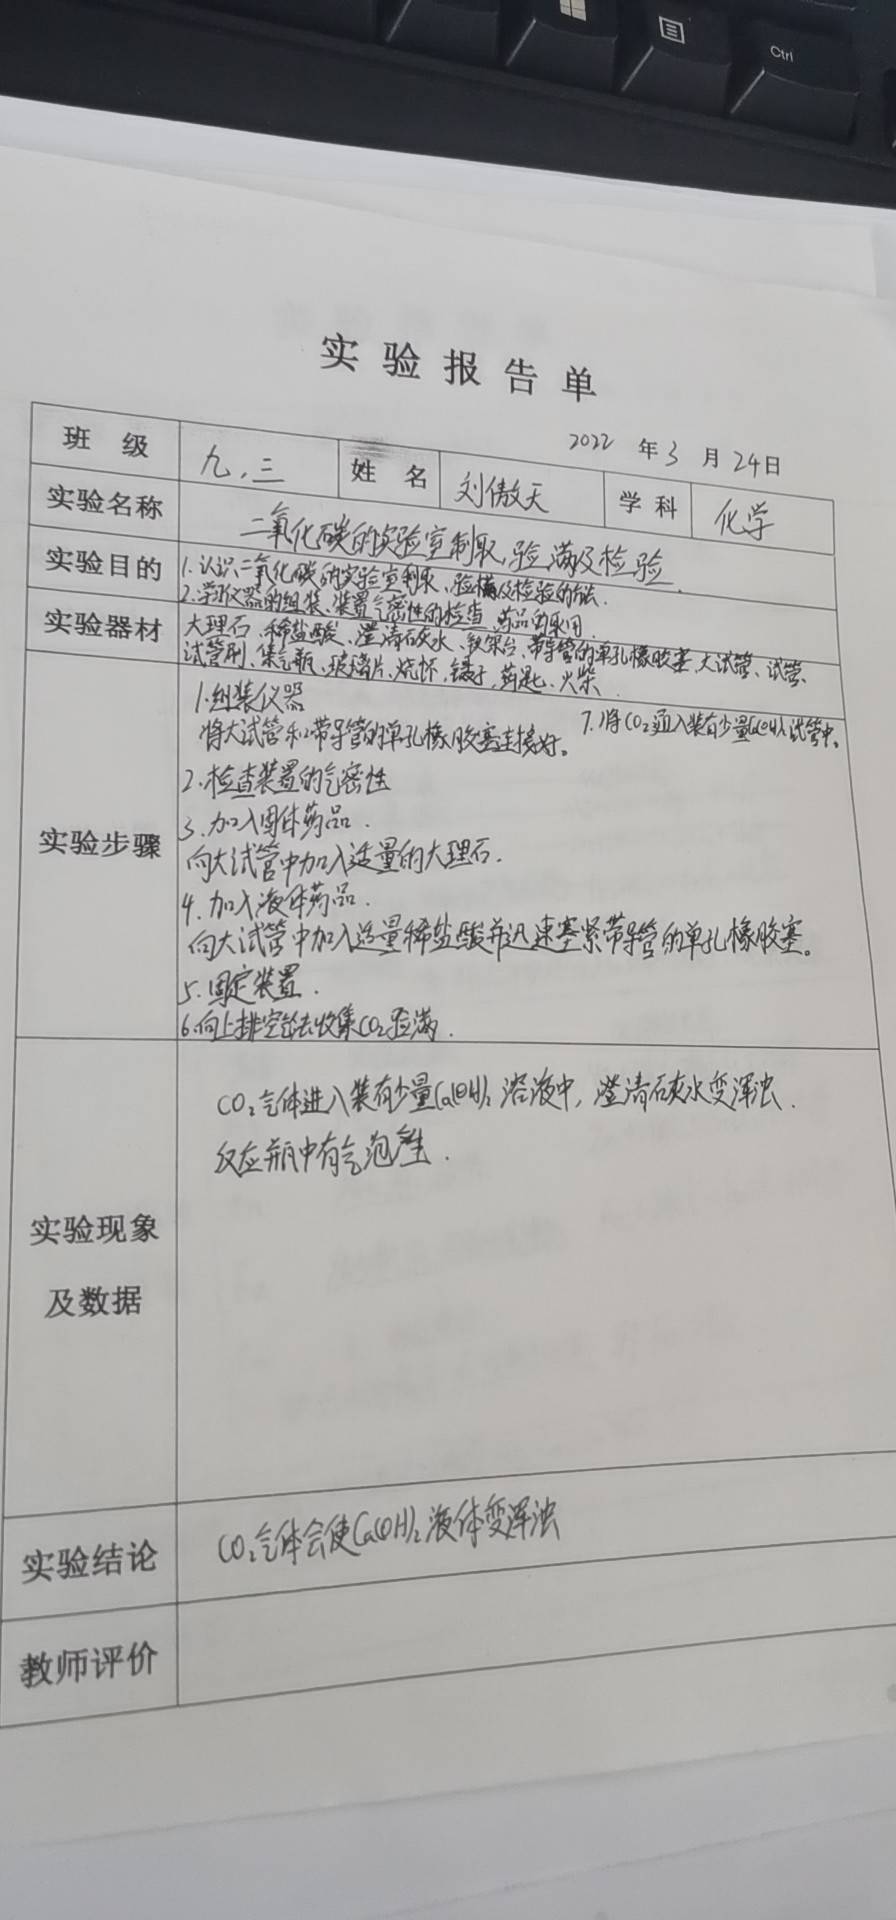 Ctrl
实验报告单
2022 年 3 月 24日
班级 九.三 姓名 刘傲天 学科 化学
实验名称 二氧化碳的实验室制取、验满及检验.
实验目的 1.认识二氧化碳的实验室制取、验满及检验的方法.
2.学习仪器的组装、装置气密性的检查、药品的取用.
实验器材 大理石、稀盐酸、澄清石灰水、铁架台、带导管的单孔橡胶塞、大试管、试管、
试管刷、集气瓶、玻璃片、烧杯、镊子、药匙、火柴.
1.组装仪器
将大试管和带导管的单孔橡胶塞连接好。 7.将CO₂通入装有少量Ca(OH)₂试管中。
2.检查装置的气密性
3.加入固体药品.
实验步骤
向大试管中加入适量的大理石.
4.加入液体药品.
向大试管中加入适量稀盐酸并迅速塞紧带导管的单孔橡胶塞。
5.固定装置.
6.向上排空气法收集CO₂验满.
CO₂气体进入装有少量Ca(OH)₂溶液中，澄清石灰水变浑浊.
反应瓶中有气泡产生.
实验现象
及数据
实验结论 CO₂气体会使Ca(OH)₂液体变浑浊
教师评价